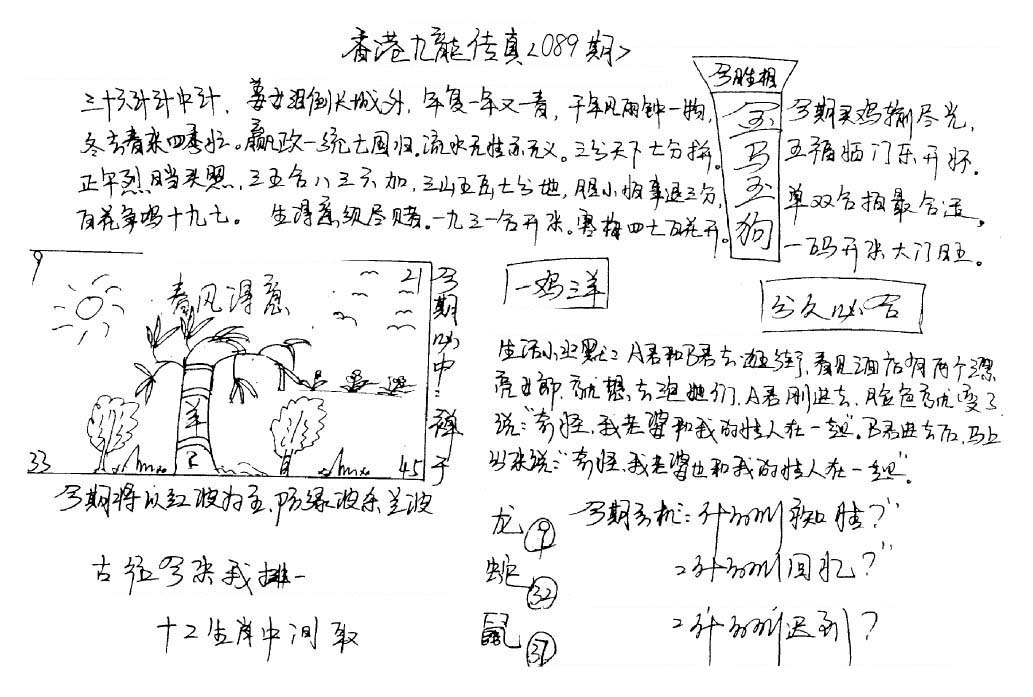 香港九龍传真<089期>
三十六计计中计，姜女泪倒长城外，年复一年又一春，千年风雨钟一物，
冬去春来四季忙。嬴政一统七国归。流水无情亦无义。三分天下七分拼。
正午烈日当头照，三五合八三六加，三山五岳七分地，胆小怕事退三分，
百花争鸣十九七。生得系须尽赌。一九三一合开来。寒梅四七百花开。
今期买鸡输尽光，
五福临门乐开怀．
单双合拍最合适，
一码开来大门旺。
今胜相
金
马
玉
狗
9
21
33
45
春风得意
羊
今期必中：禅于
一鸡三羊
分久必合
生活小 A君和B君去逛街，看见酒店有两个漂
亮女郎，就想去泡她们，A君刚进去，脸色就变了
说：“奇怪，我老婆和我的情人在一起”。B君进去后，马上
出来说：“奇怪，我老婆也和我的情人在一起”。
今期将以红波为主，防绿波杀兰波
古径今来我排一
十二生肖中间取
龙 9
蛇 32
鼠 37
今期玄机：什么叫知情？”
什么叫回忆？”
什么叫迟到？